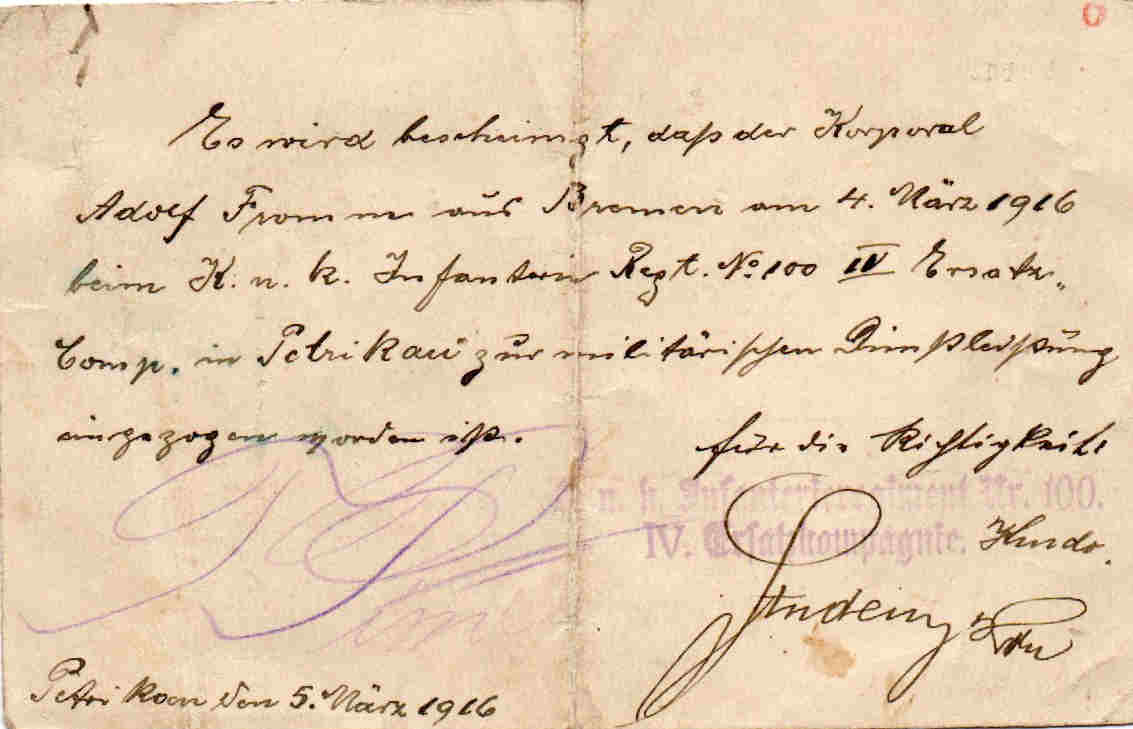 Es wird bescheinigt, daß der Korporal
Adolf Fromm aus Bremen am 4. März 1916
beim K. u. k. Infanterie Regt. No 100 IV Ersatz-
Comp. in Petrikau zur militärischen Dienstleistung
eingezogen worden ist.
für die Richtigkeit:
u. k. Infanterieregiment Nr. 100.
IV. Ersatzkompagnie. Kmdo.
Petrikau den 5. März 1916